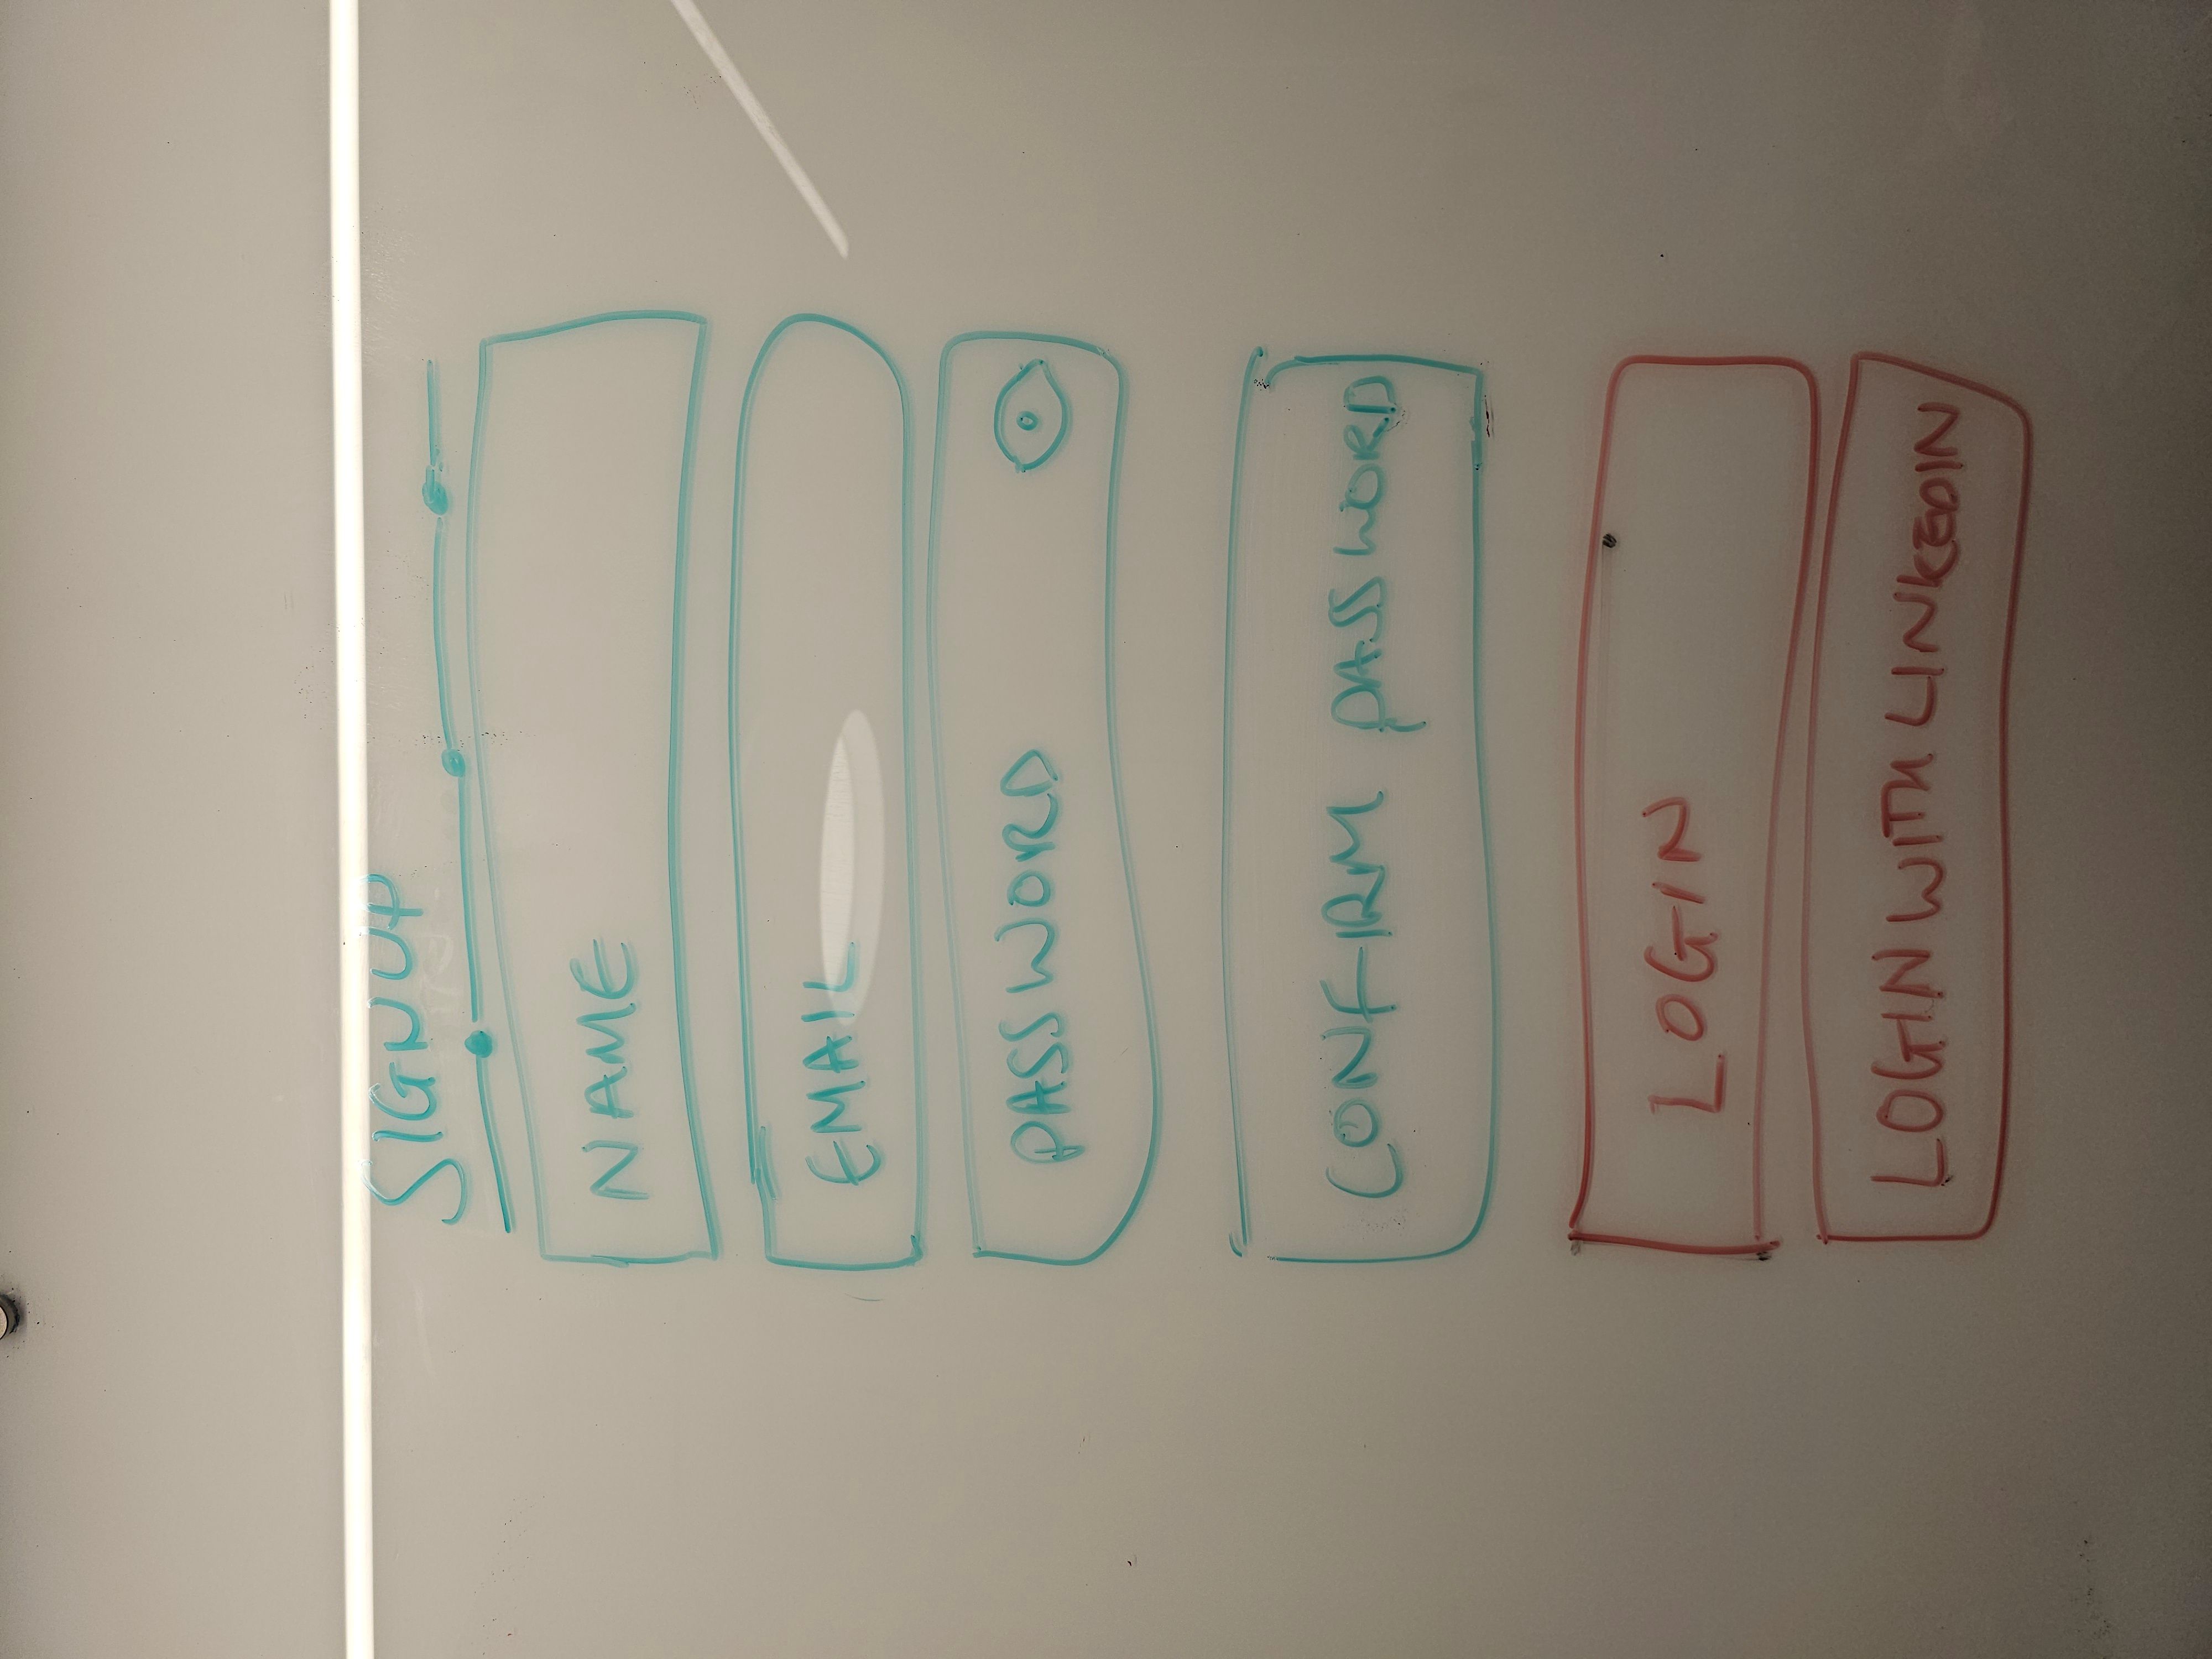 SIGNUP
NAME
EMAIL
PASSWORD
CONFIRM PASSWORD
LOGIN
LOGIN WITH LINKEDIN